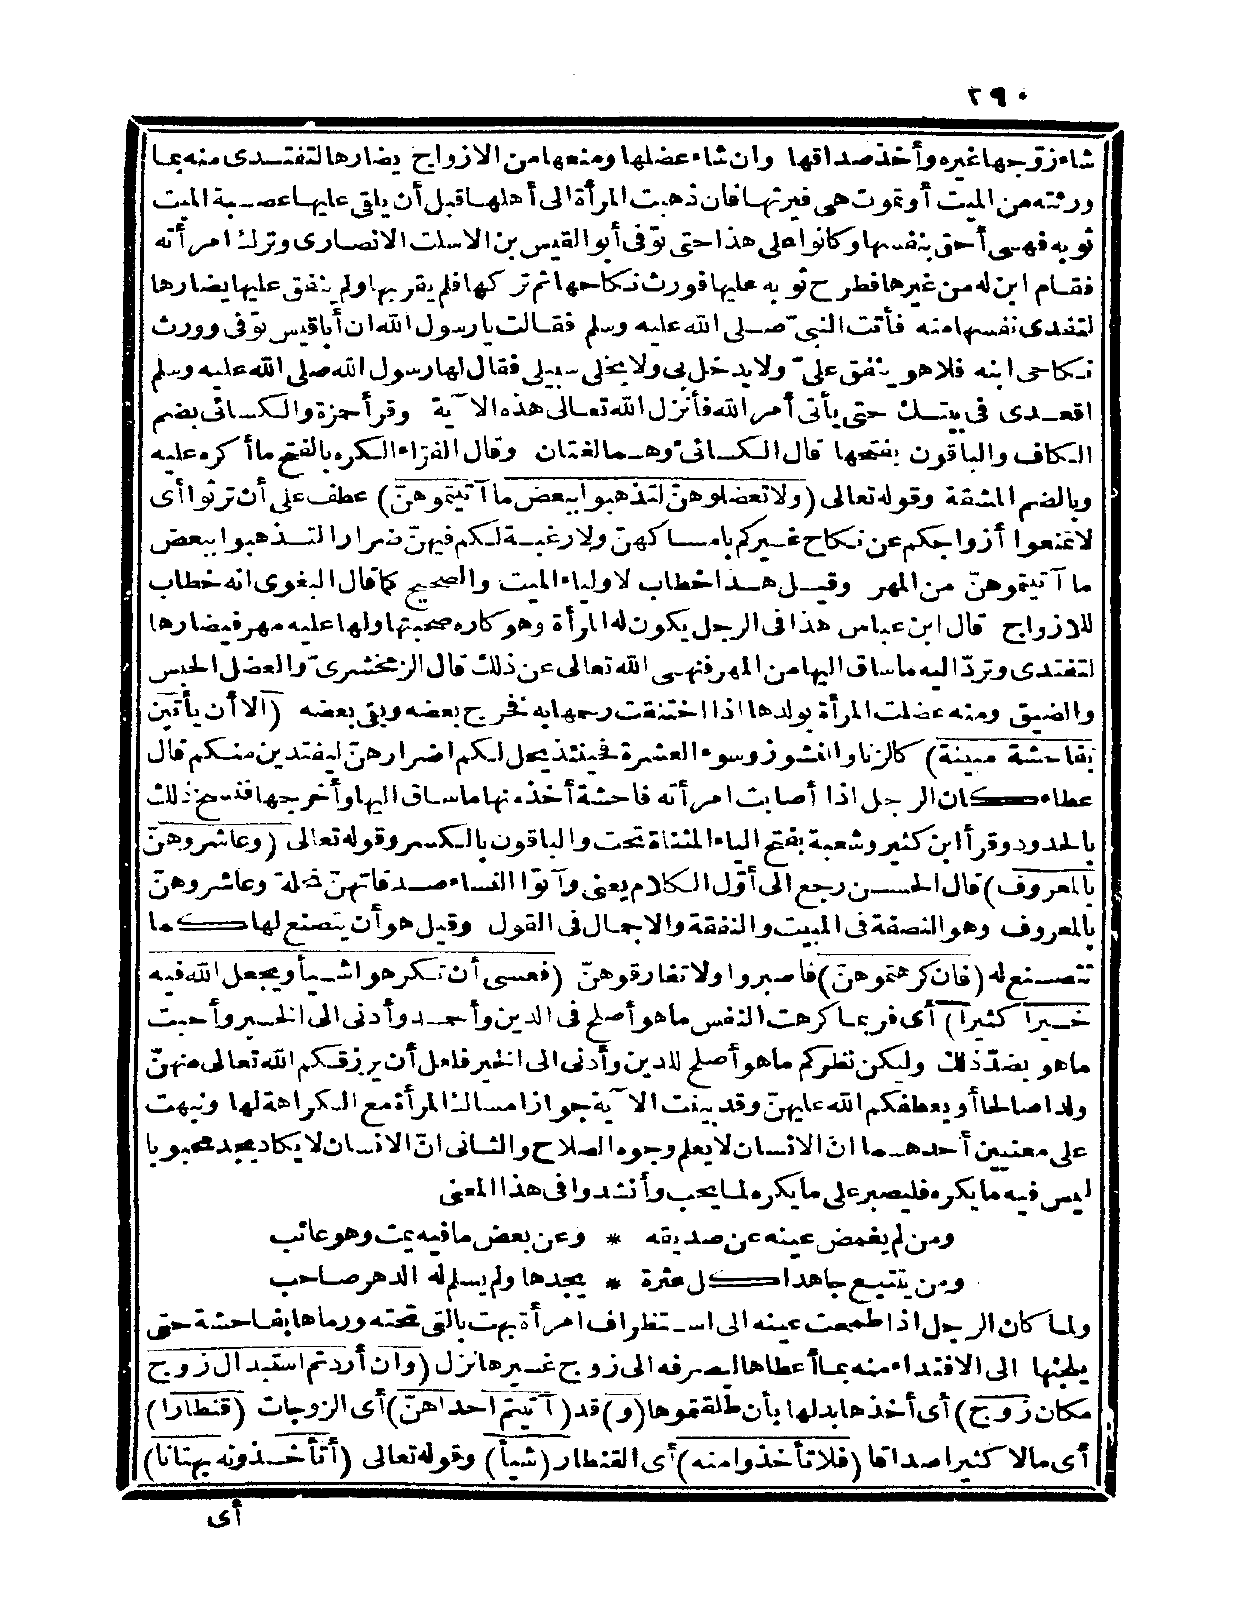 ٢٩٠
شاء زوّجها غيره وأخذ صداقها وان شاء عضلها ومنعها من الازواج يضارها لتفتدى منه بما
ورثته من الميت أو تموت هى فيرثها فان ذهبت المرأة الى أهلها قبل أن يلقى عليها عصبة الميت
ثوبه فهى أحق بنفسها وكانوا على هذا حتى توفى أبو القيس بن الاسلت الانصارى وترك امرأته
فقام ابن له من غيرها فطرح ثوبه عليها فورث نكاحها ثم تركها فلم يقربها ولم ينفق عليها يضارها
لتفتدى نفسها منه فأتت النبىّ صلى الله عليه وسلم فقالت يا رسول الله ان أبا قيس توفى وورث
نكاحى ابنه فلا هو ينفق علىّ ولا يدخل بى ولا يخلى سبيلى فقال لها رسول الله صلى الله عليه وسلم
اقعدى فى بيتك حتى يأتى أمر الله فأنزل الله تعالى هذه الآية وقرأ حمزة والكسائى بضم
الكاف والباقون بفتحها قال الكسائىّ وهما لغتان وقال الفرّاء الكره بالفتح ما أكره عليه
وبالضم المشقة وقوله تعالى (ولا تعضلوهنّ لتذهبوا ببعض ما آتيتموهنّ) عطف على أن ترثوا أى
لا تمنعوا أزواجكم عن نكاح غيركم بامساكهنّ ولا رغبة لكم فيهنّ ضرارا لتذهبوا ببعض
ما آتيتموهنّ من المهر وقيل هذا خطاب لاولياء الميت والصحيح كما قال البغوى انه خطاب
للازواج قال ابن عباس هذا فى الرجل يكون له المرأة وهو كاره صحبتها ولها عليه مهر فيضارها
لتفتدى وتردّ اليه ما ساق اليها من المهر فنهى الله تعالى عن ذلك قال الزمخشرىّ والعضل الحبس
والضيق ومنه عضلت المرأة بولدها اذا اختنقت رحمها به فخرج بعضه وبقى بعضه (الا أن يأتين
بفاحشة مبينة) كالزنا والنشوز وسوء العشرة فحينئذ يحل لكم اضرارهنّ ليفتدين منكم قال
عطاء كان الرجل اذا أصابت امرأته فاحشة أخذ منها ما ساق اليها وأخرجها فنسخ ذلك
بالحدود وقرأ ابن كثير وشعبة بفتح الياء المثناة تحت والباقون بالكسر وقوله تعالى (وعاشروهنّ
بالمعروف) قال الحسن رجع الى أوّل الكلام يعنى وآتوا النساء صدقاتهنّ نحلة وعاشروهنّ
بالمعروف وهو النصفة فى المبيت والنفقة والاجمال فى القول وقيل هو أن يتصنع لها كما
تتصنع له (فان كرهتموهنّ) فاصبروا ولا تفارقوهنّ (فعسى أن تكرهوا شيأ ويجعل الله فيه
خيرا كثيرا) أى فربما كرهت النفس ما هو أصلح فى الدين وأحمد وأدنى الى الخير وأحبت
ما هو بضدّ ذلك وليكن نظركم ما هو أصلح للدين وأدنى الى الخير فلعل أن يرزقكم الله تعالى منهنّ
ولدا صالحا أو يعطفكم الله عليهنّ وقد بينت الآية جواز امساك المرأة مع الكراهة لها ونبهت
على معنيين أحدهما انّ الانسان لا يعلم وجوه الصلاح والثانى انّ الانسان لا يكاد يجد محبوبا
ليس فيه ما يكره فليصبر على ما يكره لما يحب وأنشدوا فى هذا المعنى
ومن لم يغمض عينه عن صديقه * وعن بعض ما فيه يمت وهو عاتب
ومن يتتبع جاهدا كل عثرة * يجدها ولم يسلم له الدهر صاحب
ولما كان الرجل اذا طمحت عينه الى استظراف امرأة بهت بالتى تحته ورماها بفاحشة حتى
يلجئها الى الافتداء منه بما أعطاها ليصرفه الى زوج غيرها نزل (وان أردتم استبدال زوج
مكان زوج) أى أخذها بدلها بأن طلقتموها (و) قد (آتيتم احداهنّ) أى الزوجات (قنطارا)
أى مالا كثيرا صداقا (فلا تأخذوا منه) أى القنطار (شيأ) وقوله تعالى (أتأخذونه بهتانا)
أى